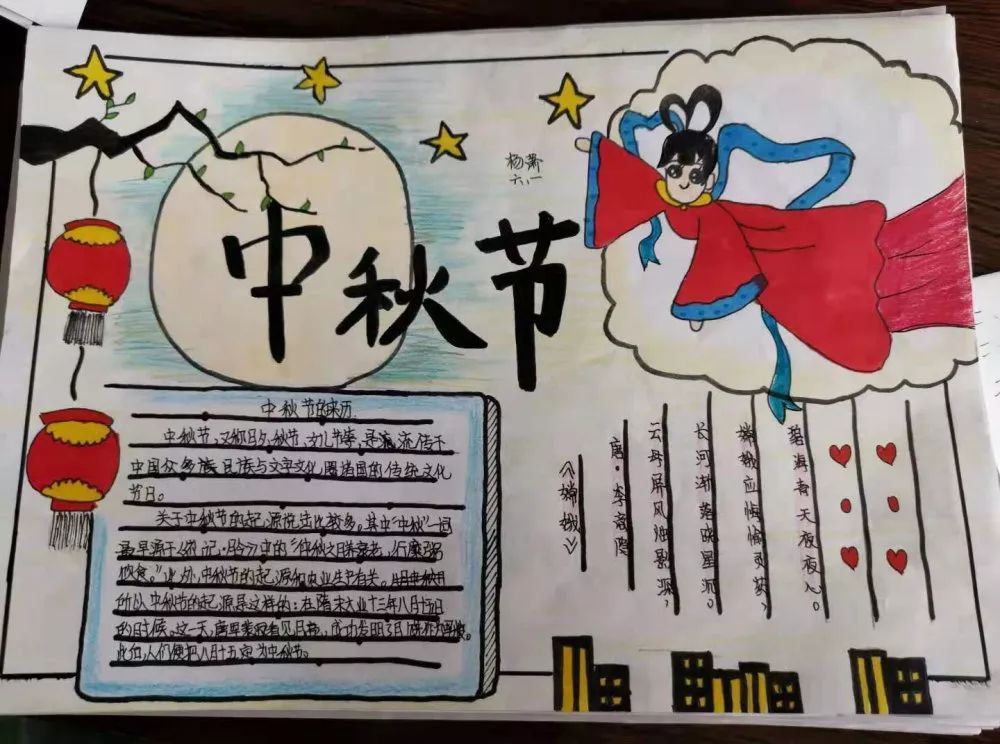 杨萧
六.一
中秋节
中秋节的来历
中秋节,又称月夕、秋节、是流传于
中国众多族民族与文字文化圈诸国的传统文化
节日。
关于中秋节的起源说法比较多。其中"中秋"一词
最早见于《礼记·月令》中的"仲秋之月养衰老,行糜粥
饮食。"此外,中秋节的起源和农业生产有关。
所以中秋节的起源是这样的:在隋末大业十三年八月十五日
的时候。这一天,唐军裴寂看见月亮,成功发明了月饼作为军饷。
此后人们便把八月十五定为中秋节。
《嫦娥》
唐·李商隐
云母屏风烛影深,
长河渐落晓星沉。
嫦娥应悔偷灵药,
碧海青天夜夜心。